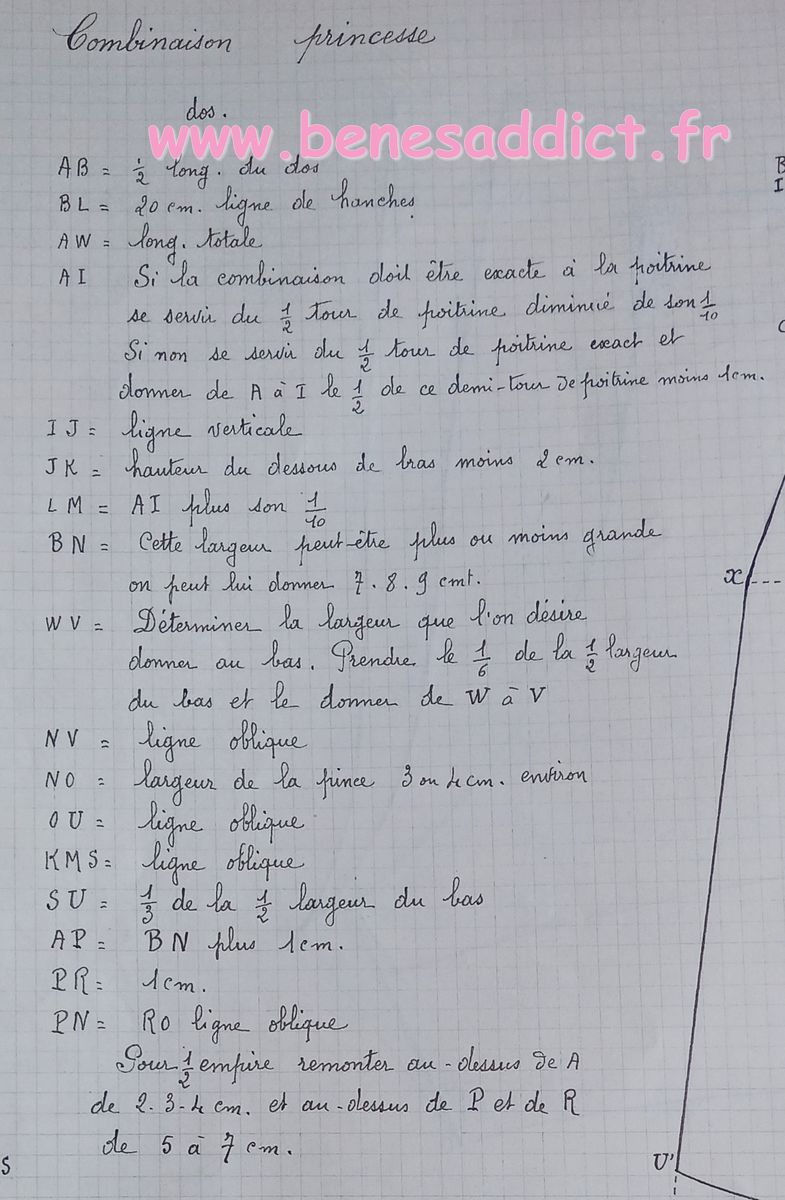 Combinaison princesse
dos.
www.benesaddict.fr
AB = 1/2 long. du dos
BL = 20 cm. ligne de hanches
AW = long. totale
AI Si la combinaison doit être exacte à la poitrine
se servir du 1/2 tour de poitrine diminué de son 1/10
Si non se servir du 1/2 tour de poitrine exact et
donner de A à I le 1/2 de ce demi-tour de poitrine moins 1cm.
IJ = ligne verticale
JK = hauteur du dessous de bras moins 2cm.
LM = AI plus son 1/10
BN = Cette largeur peut-être plus ou moins grande
on peut lui donner 7.8.9 cmt.
WV = Déterminer la largeur que l'on désire
donner au bas. Prendre le 1/6 de la 1/2 largeur
du bas et le donner de W à V
NV = ligne oblique
NO = largeur de la pince 3 ou 4cm. environ
OU = ligne oblique
KMS = ligne oblique
SU = 1/3 de la 1/2 largeur du bas
AP = BN plus 1cm.
PR = 1cm.
PN = RO ligne oblique
Pour 1/2 empire remonter au-dessus de A
de 2.3-4cm. et au-dessus de P et de R
de 5 à 7cm.
X
U'
S